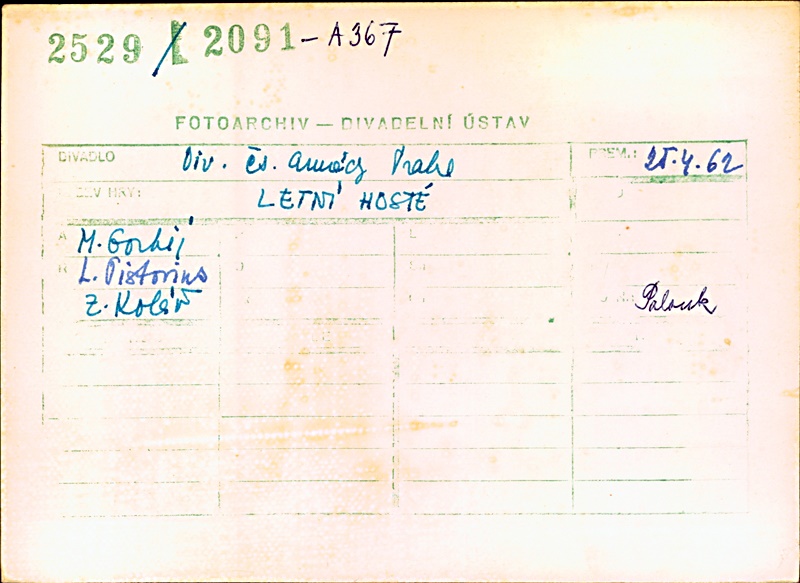 2529 / 2091 - A367
FOTOARCHIV — DIVADELNÍ ÚSTAV
DIVADLO Div. čs. armády Praha PREM.: 25.4.62
NÁZEV HRY: LETNÍ HOSTÉ
A M. Gorkij
R L. Pistorius
Z. Kolář Palouk